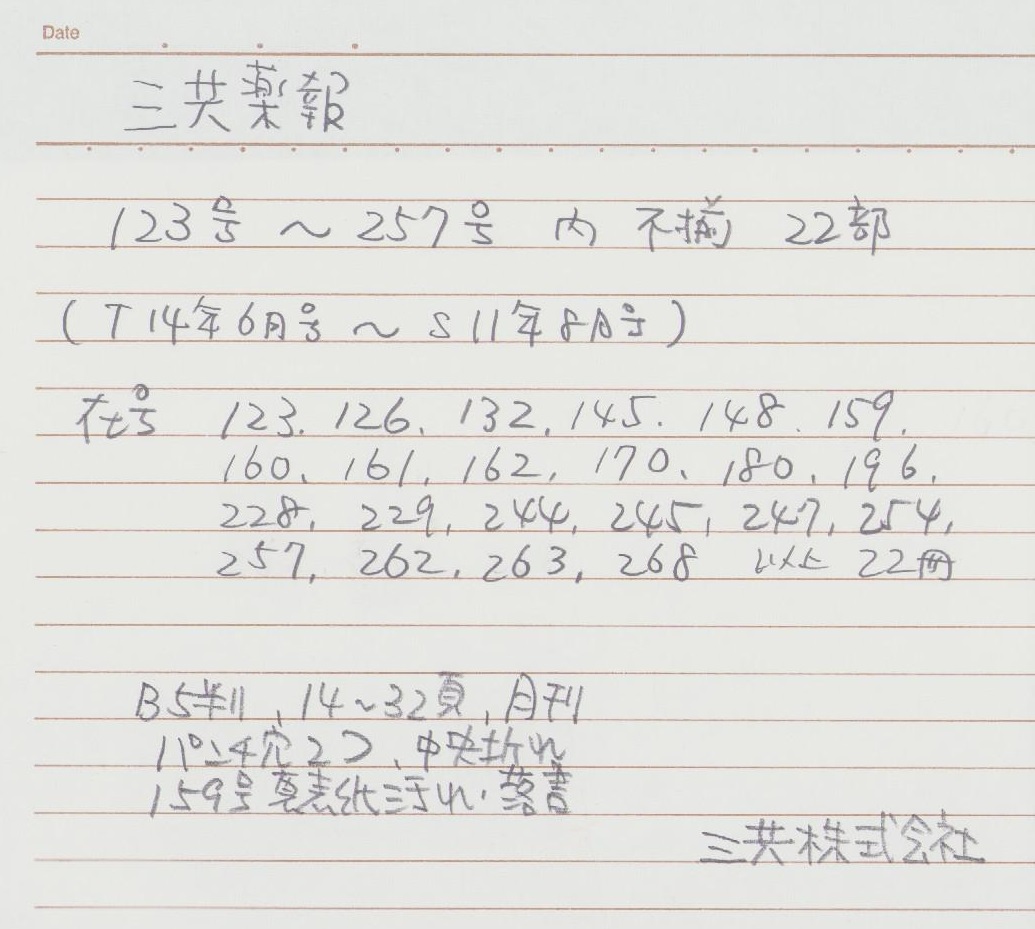 Date
三共薬報
123号 ～ 257号 内 不揃 22部
(T14年6月号 ～ S11年8月号)
在号 123. 126. 132. 145. 148. 159.
160. 161. 162. 170. 180. 196.
228. 229. 244. 245. 247. 254.
257. 262. 263. 268 以上 22冊
B5判, 14~32頁, 月刊
パンチ穴2つ、中央折れ
159号裏表紙汚れ・落書
三共株式会社